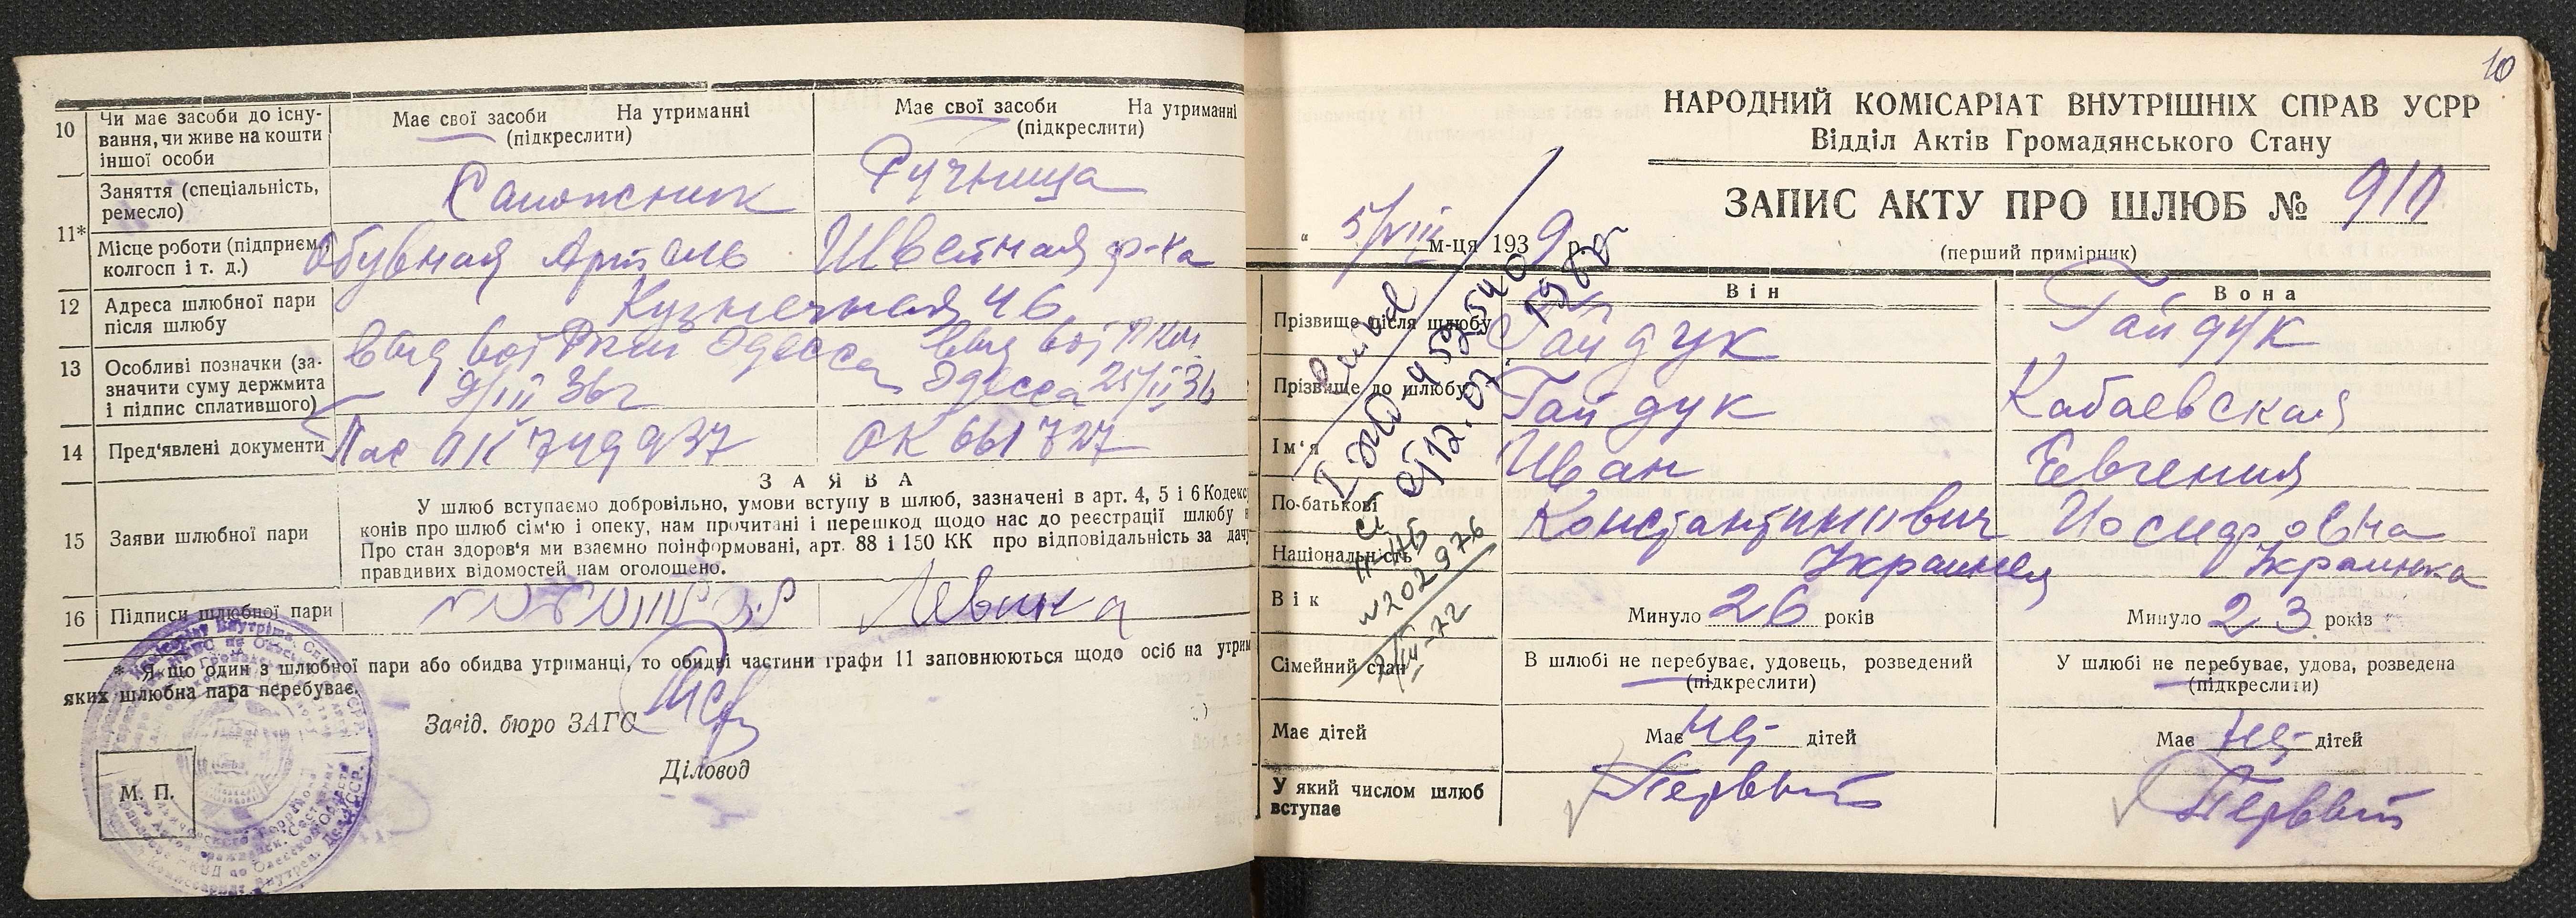 10 Чи має засоби до існування, чи живе на кошти іншої особи
Має свої засоби На утриманні
(підкреслити)
Має свої засоби На утриманні
(підкреслити)
11*
Заняття (спеціальність, ремесло)
Сапожник Ручница
Місце роботи (підприєм., колгосп і т. д.)
Обувная Артель Швейная ф-ка
12 Адреса шлюбної пари після шлюбу
Кузнечная 46
13 Особливі позначки (зазначити суму держмита і підпис сплатившого)
Одесса
9/III 36г Одесса 25/II 36
14 Пред'явлені документи
Пас ОК 749937 ОК 661727
ЗАЯВА
15 Заяви шлюбної пари
У шлюб вступаємо добровільно, умови вступу в шлюб, зазначені в арт. 4, 5 і 6 Кодекс
конів про шлюб сім'ю і опеку, нам прочитані і перешкод щодо нас до реєстрації шлюбу
Про стан здоров'я ми взаємно поінформовані, арт. 88 і 150 КК про відповідальність за дачу
правдивих відомостей нам оголошено.
16 Підписи шлюбної пари
* Якщо один з шлюбної пари або обидва утриманці, то обидві частини графи 11 заповнюються щодо осіб на утрим
яких шлюбна пара перебуває.
Завід. бюро ЗАГС
Діловод
М. П.
10
НАРОДНИЙ КОМІСАРІАТ ВНУТРІШНІХ СПРАВ УСРР
Відділ Актів Громадянського Стану
ЗАПИС АКТУ ПРО ШЛЮБ № 910
(перший примірник)
" 5/VIII м-ця 1939 р.
Він Вона
Прізвище після шлюбу Гайдук Гайдук
Прізвище до шлюбу Гайдук Кабаевская
Ім'я Иван Евгения
По-батькові Константинович Иосифовна
Національність Украинец Украинка
Вік Минуло 26 років Минуло 23 років
Сімейний стан
В шлюбі не перебуває, удовець, розведений
(підкреслити)
У шлюбі не перебуває, удова, розведена
(підкреслити)
Має дітей Має нет дітей Має нет дітей
У який числом шлюб вступає Первый Первый
I ЖД 4592540
от 12.07. 1982
II-ЖБ
№ 202976